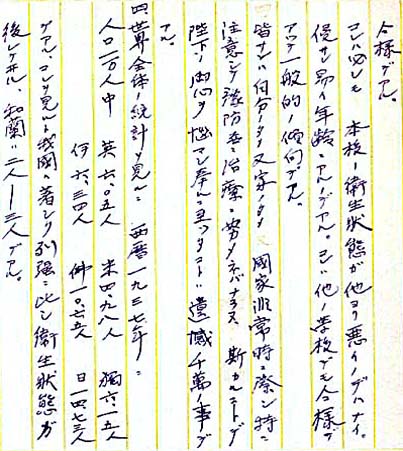 仝様デアル。
コレハ必シモ本校ノ衛生状態ガ他ヨリ悪イノデハナイ。
侵サレ易イ年齢ニアルノデアル。コレハ他ノ学校デモ仝様デ
アツテ一般的ノ傾向デアル。
皆サンハ自分ノタメ又家ノタメ又国家非常時ニ際シ特ニ
注意シテ予防並ニ治療ニ努メネバナラヌ 斯カルコトデ
陛下ノ御心ヲ悩マシ奉ルニ至ツタコトハ遺憾千萬ノ事デ
アル。
四、世界全体ノ統計ヲ見ルニ 西暦一九三七年ニ
人口一万人中 英 六.〇五人 米 四.九八人 独 六.一五人
伊 六.三四人 佛 一〇.七五人 日 一四.七三人
デアル、コレヲ見ルト我國ハ著シク列強ニ比シ衛生状態ガ
後レテ居ル、和蘭ハ二人ー三人デアル。